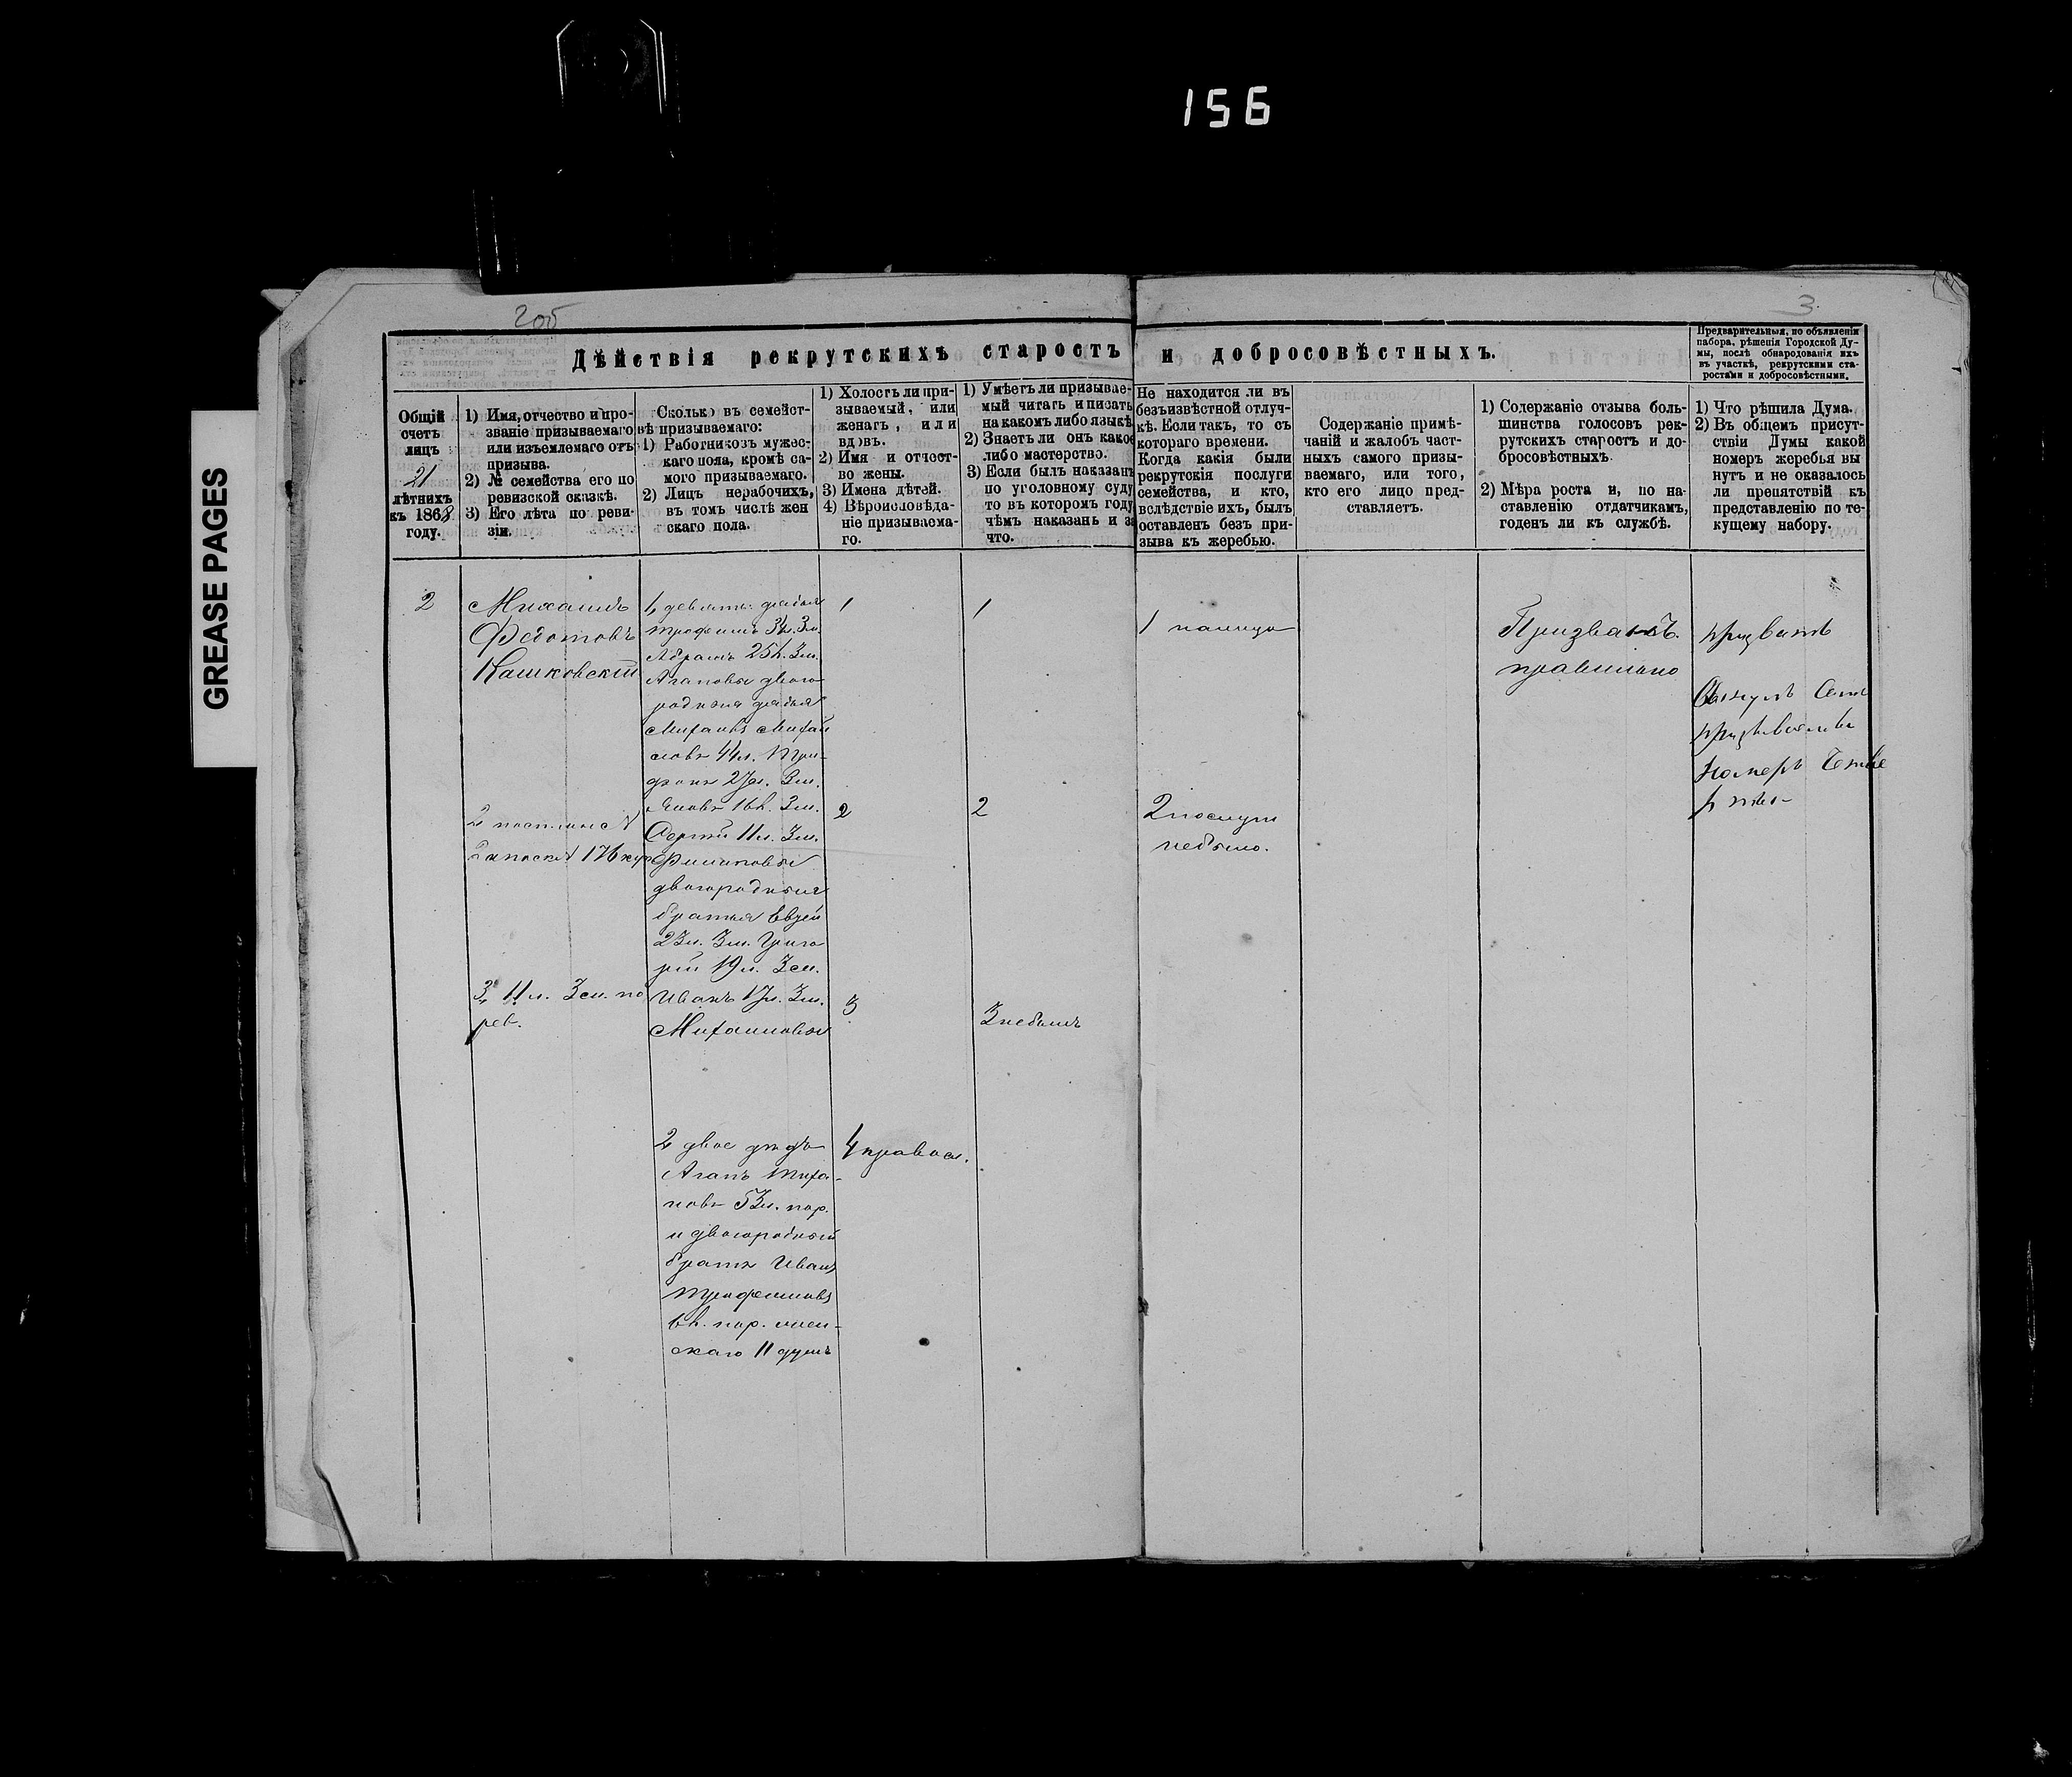 156
GREASE PAGES
2об
3.
Дѣйствія рекрутскихъ старостъ и добросовѣстныхъ.
Предварительныя, по объявленіи
набора, рѣшенія Городской Ду-
мы, послѣ обнародованія ихъ
въ участкѣ, рекрутскими ста-
ростами и добросовѣстными.
Общій
счетъ
лицъ
21
лѣтнихъ
къ 1868
году.
1) Имя, отчество и про-
званіе призываемаго
или изъемлемаго отъ
призыва.
2) № семейства его по
ревизской сказкѣ.
3) Его лѣта по реви-
зіи.
Сколько въ семейст-
вѣ призываемаго:
1) Работниковъ мужес-
каго пола, кромѣ са-
мого призываемаго.
2) Лицъ нерабочихъ,
въ томъ числѣ жен
скаго пола.
1) Холостъ ли при-
зываемый, или
женатъ, или
вдовъ.
2) Имя и отчест-
во жены.
3) Имена дѣтей.
4) Вѣроисповѣда-
ніе призываема-
го.
1) Умѣетъ ли призывае-
мый читать и писать
на какомъ либо языкѣ.
2) Знаетъ ли онъ какое
либо мастерство.
3) Если былъ наказанъ
по уголовному суду
то въ которомъ году,
чѣмъ наказанъ и за
что.
Не находится ли въ
безъизвѣстной отлуч-
кѣ. Если такъ, то съ
котораго времени.
Когда какія были
рекрутскія послуги
семейства, и кто,
вслѣдствіе ихъ, былъ
оставленъ безъ при-
зыва къ жеребью.
Содержаніе примѣ-
чаній и жалобъ част-
ныхъ самого призы-
ваемаго, или того,
кто его лицо пред-
ставляетъ.
1) Содержаніе отзыва боль-
шинства голосовъ рек-
рутскихъ старостъ и до-
бросовѣстныхъ.
2) Мѣра роста и, по на-
ставленію отдатчикамъ,
годенъ ли къ службѣ.
1) Что рѣшила Дума.
2) Въ общемъ присут-
ствіи Думы какой
номеръ жеребья вы
нутъ и не оказалось
ли препятствій къ
представленію по те-
кущему набору.
2
Михаилъ
Федотовъ
Кашковскій
2
176
3, 11 л. 3 м. по
рев.
1, девять: дядья
Трофимъ 31 л. 3 м.
Абрамъ 25 л. 3 м.
Агаповы двою
родныя дядья
Михаилъ Михай
ловъ 44 л. Три-
фонъ 27 л. 3 м.
Яковъ 16 л. 3 м.
Сергѣй 11 л. 3 м.
Филиповы
двоюродныя
братья Евсей
23 л. 3 м. Григо
рій 19 л. 3 м.
Иванъ 17 л. 3 м.
Михаиловы
2 двое дядя
Агапъ
53 л. пор.
и двоюродный
братъ Иванъ
Трофимовъ
6 л. пор. жен-
скаго 11 душъ
1
2
3
4 правосл.
1
2
3 небылъ
1 налицо
2 послугъ
небыло.
Призванъ
правильно
призвать
Вынулъ Самъ
номеръ